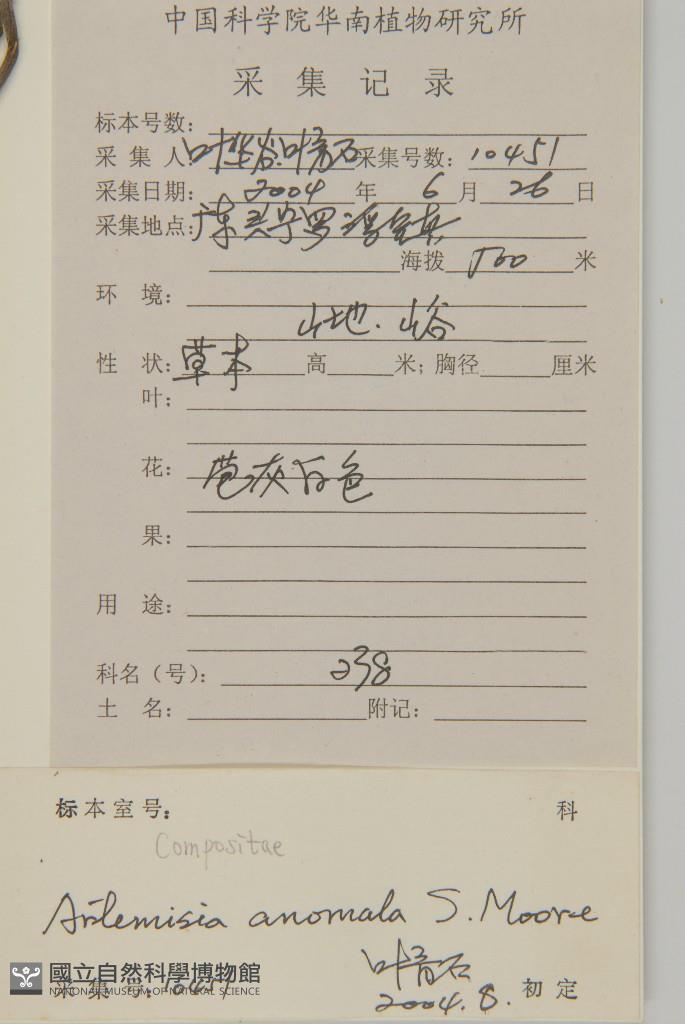 中国科学院华南植物研究所
采集记录
标本号数:
采集人: 叶华谷 叶育石 采集号数: 10451
采集日期: 2004 年 6 月 26 日
采集地点: 广东兴宁罗浮
海拨 500 米
环境:
山地.山谷
性状: 草本 高 米; 胸径 厘米
叶:
花: 苞灰白色
果:
用途:
科名(号): 238
土名: 附记:
标本室号: 科
Compositae
Artemisia anomala S. Moore
叶育石
采集号: 10451 2004.8. 初定
國立自然科學博物館
NATIONAL MUSEUM OF NATURAL SCIENCE